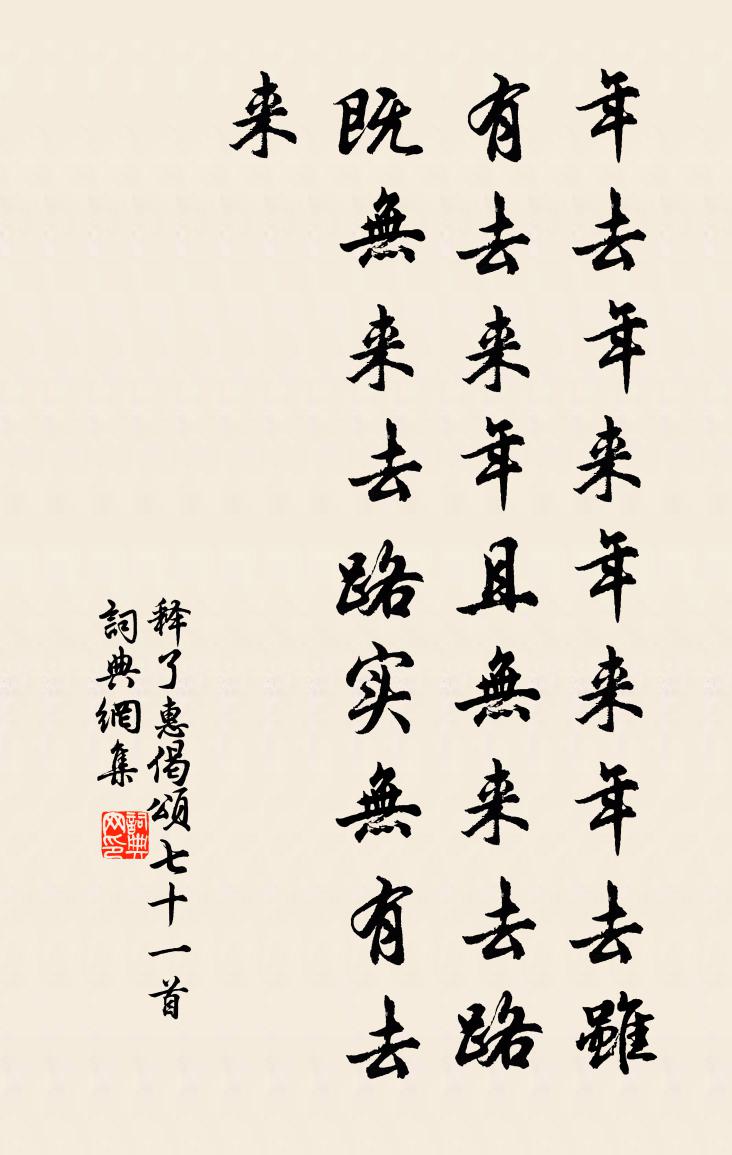 年去年来年来年去雖
有去来年且無来去路
既無来去路实無有去
来
释了惠偈頌七十一首
詞典網集
詞典网印